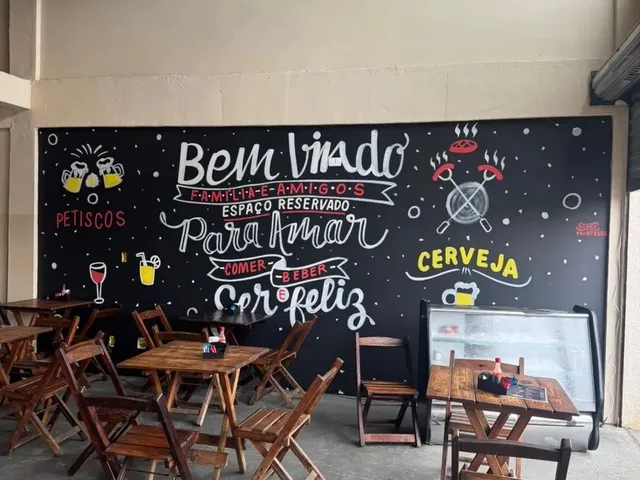 Bem Vindo
FAMILIA E AMIGOS
ESPAÇO RESERVADO
Para Amar
COMER BEBER
E
Ser feliz
PETISCOS
CERVEJA